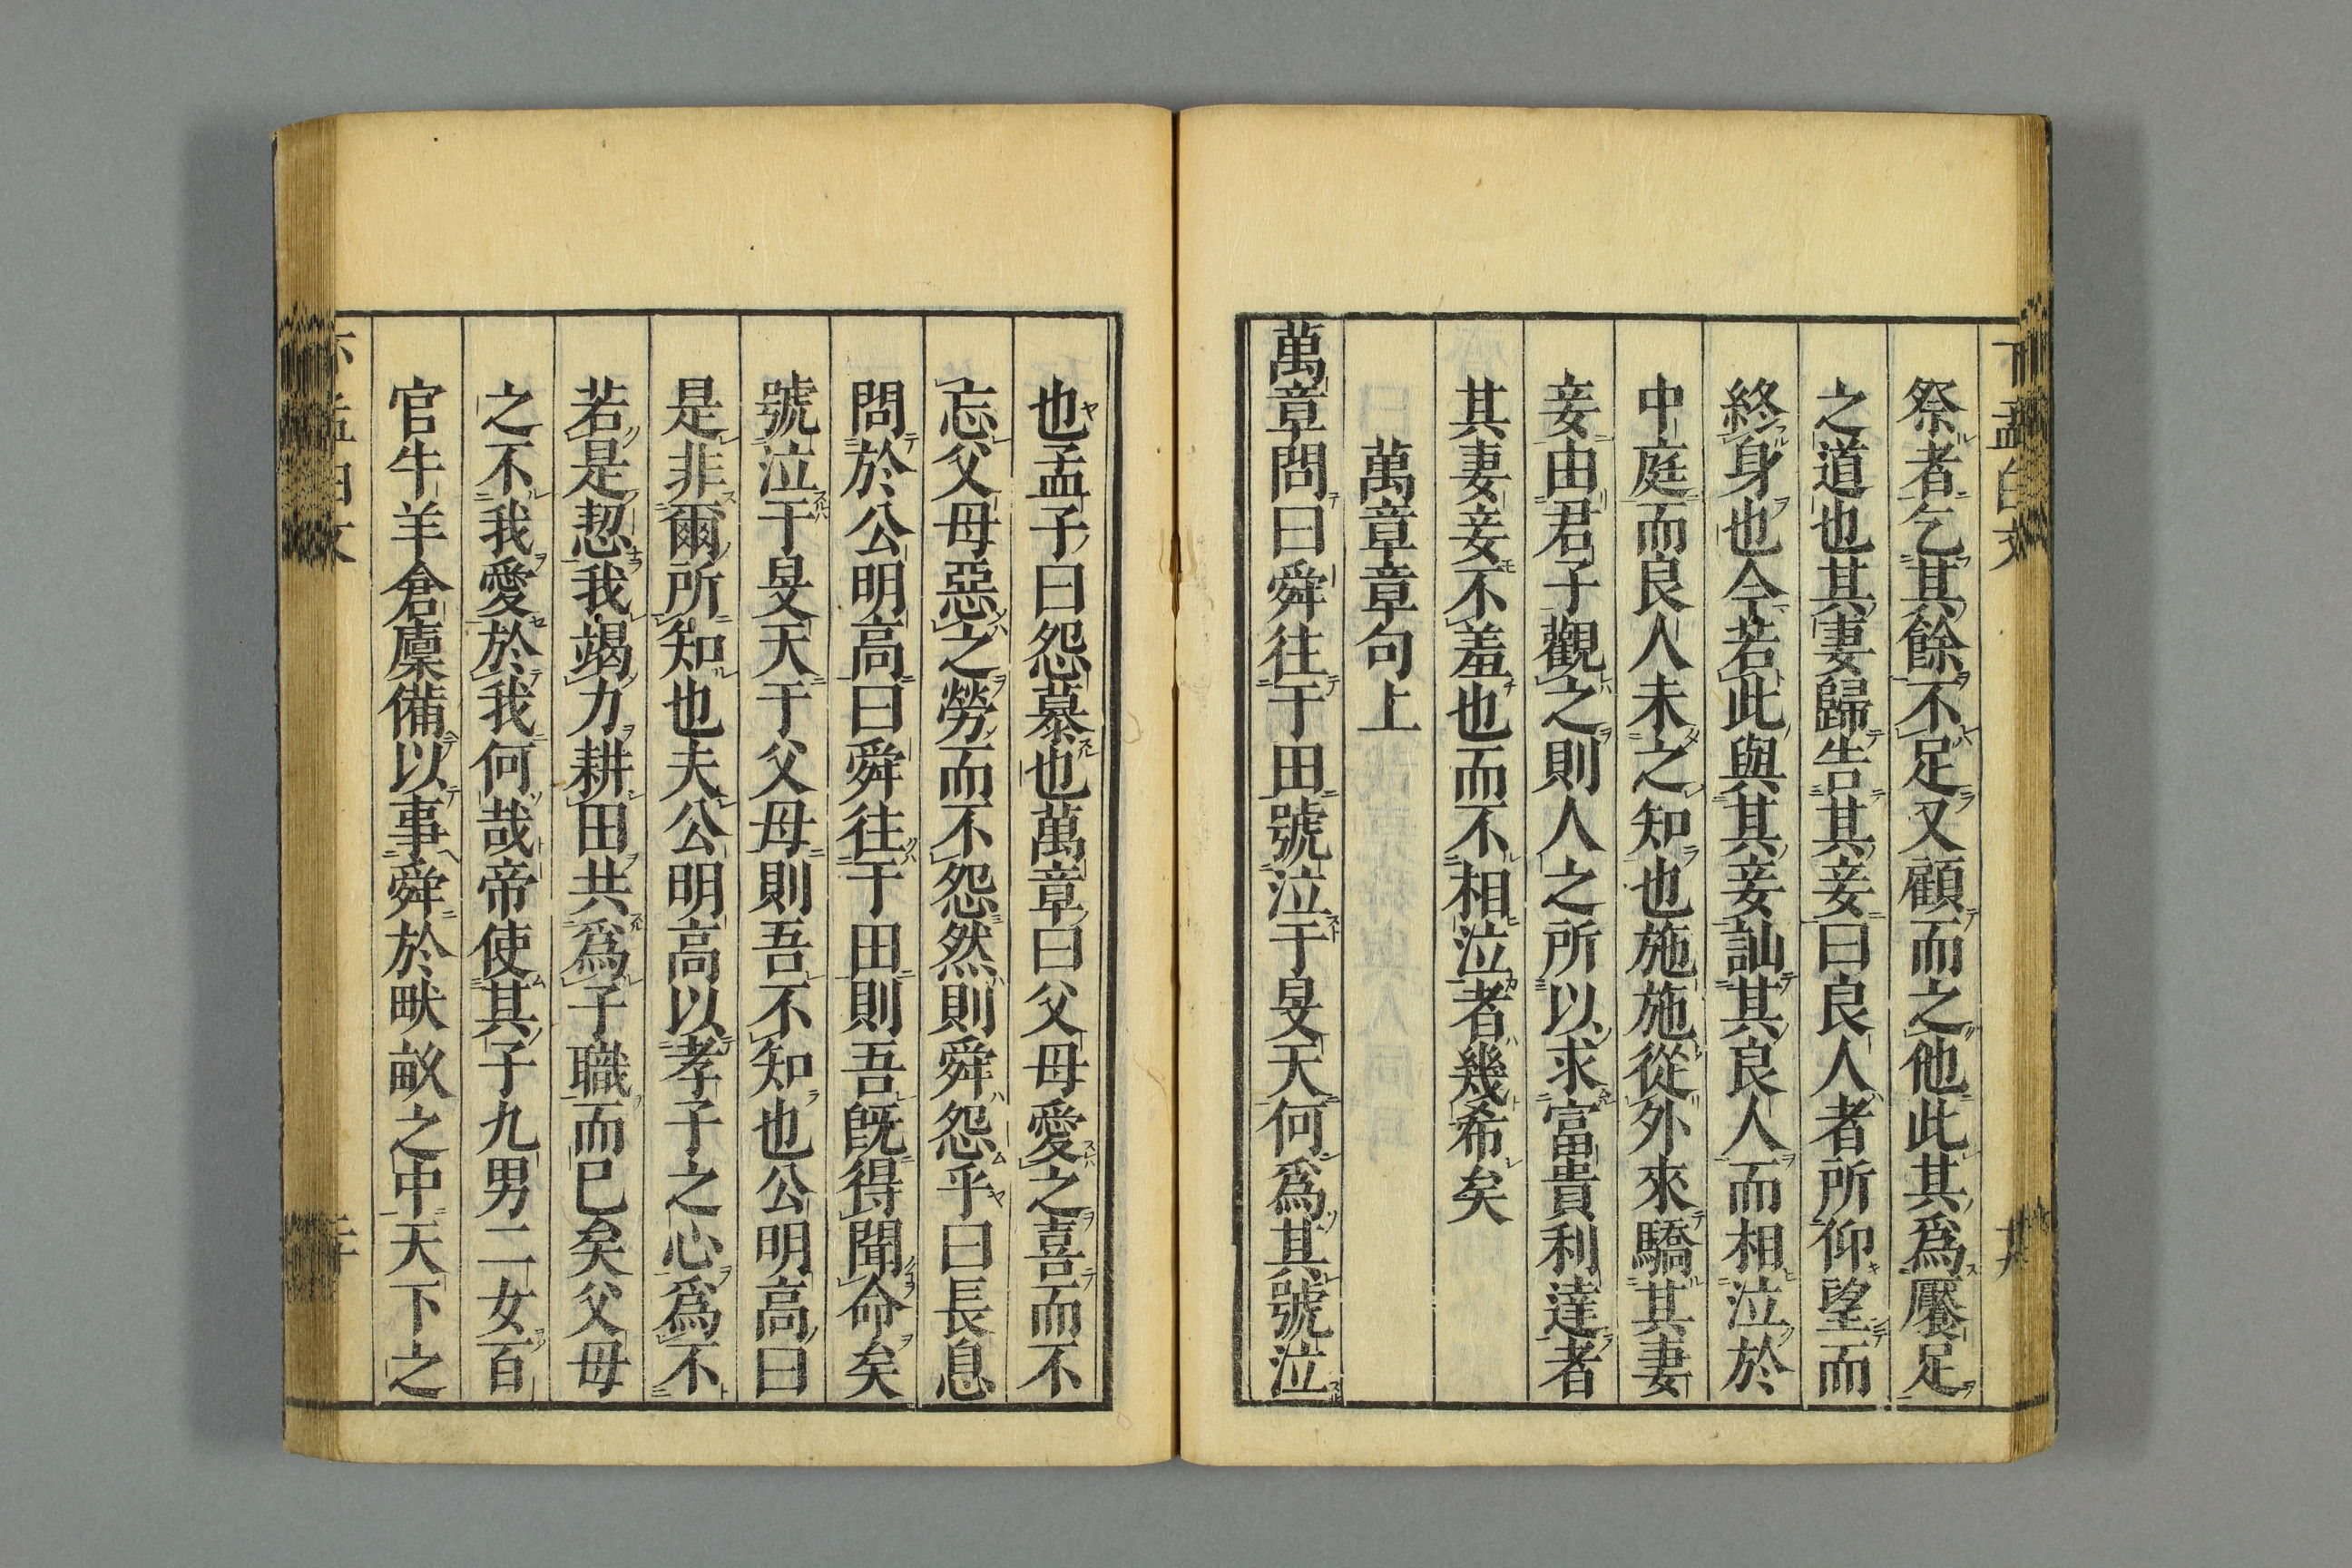 祭者乞其餘不足又顧而之他此其爲饜足
之道也其妻歸告其妾曰良人者所仰望而
終身也今若此與其妾訕其良人而相泣於
中庭而良人未之知也施施從外來驕其妻
妾由君子觀之則人之所以求富貴利達者
其妻妾不羞也而不相泣者幾希矣
萬章章句上
萬章問曰舜往于田號泣于旻天何爲其號泣
也孟子曰怨慕也萬章曰父母愛之喜而不
忘父母惡之勞而不怨然則舜怨乎曰長息
問於公明高曰舜往于田則吾既得聞命矣
號泣于旻天于父母則吾不知也公明高曰
是非爾所知也夫公明高以孝子之心爲不
若是恝我竭力耕田共爲子職而已矣父母
之不我愛於我何哉帝使其子九男二女百
官牛羊倉廩備以事舜於畎畝之中天下之